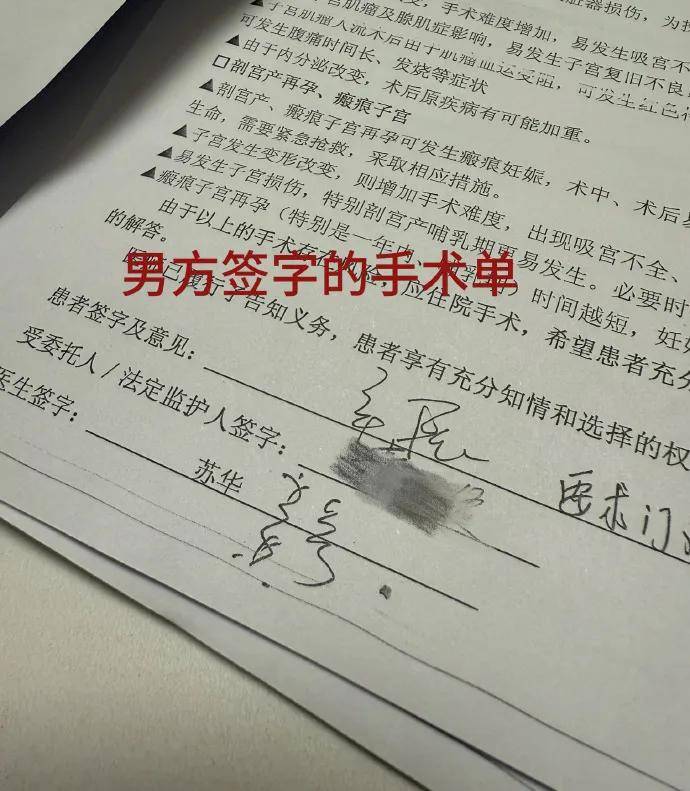 子宫肌瘤及腺肌症影响，易发生吸宫不
手术难度增加，易发生
脏器损伤，为
▲子宫肌瘤人流术后由于肌瘤血运受阻，可发生红色
可发生腹痛时间长、发烧等症状
▲由于内分泌改变，术后原疾病有可能加重。
□剖宫产再孕、瘢痕子宫
▲剖宫产、瘢痕子宫再孕可发生瘢痕妊娠，术中、术后
生命，需要紧急抢救，采取相应措施。
▲子宫发生变形改变，则增加手术难度，出现吸宫不全、
▲易发生子宫损伤，特别剖宫产哺乳期更易发生。必要时
▲瘢痕子宫再孕（特别是一年内、时间越短，妊
由于以上的手术应住院手术，希望患者充分
的解答。
男方签字的手术单
已履行了告知义务，患者享有充分知情和选择的权
患者签字及意见：
受委托人/法定监护人签字：
要求门
医生签字：
苏华